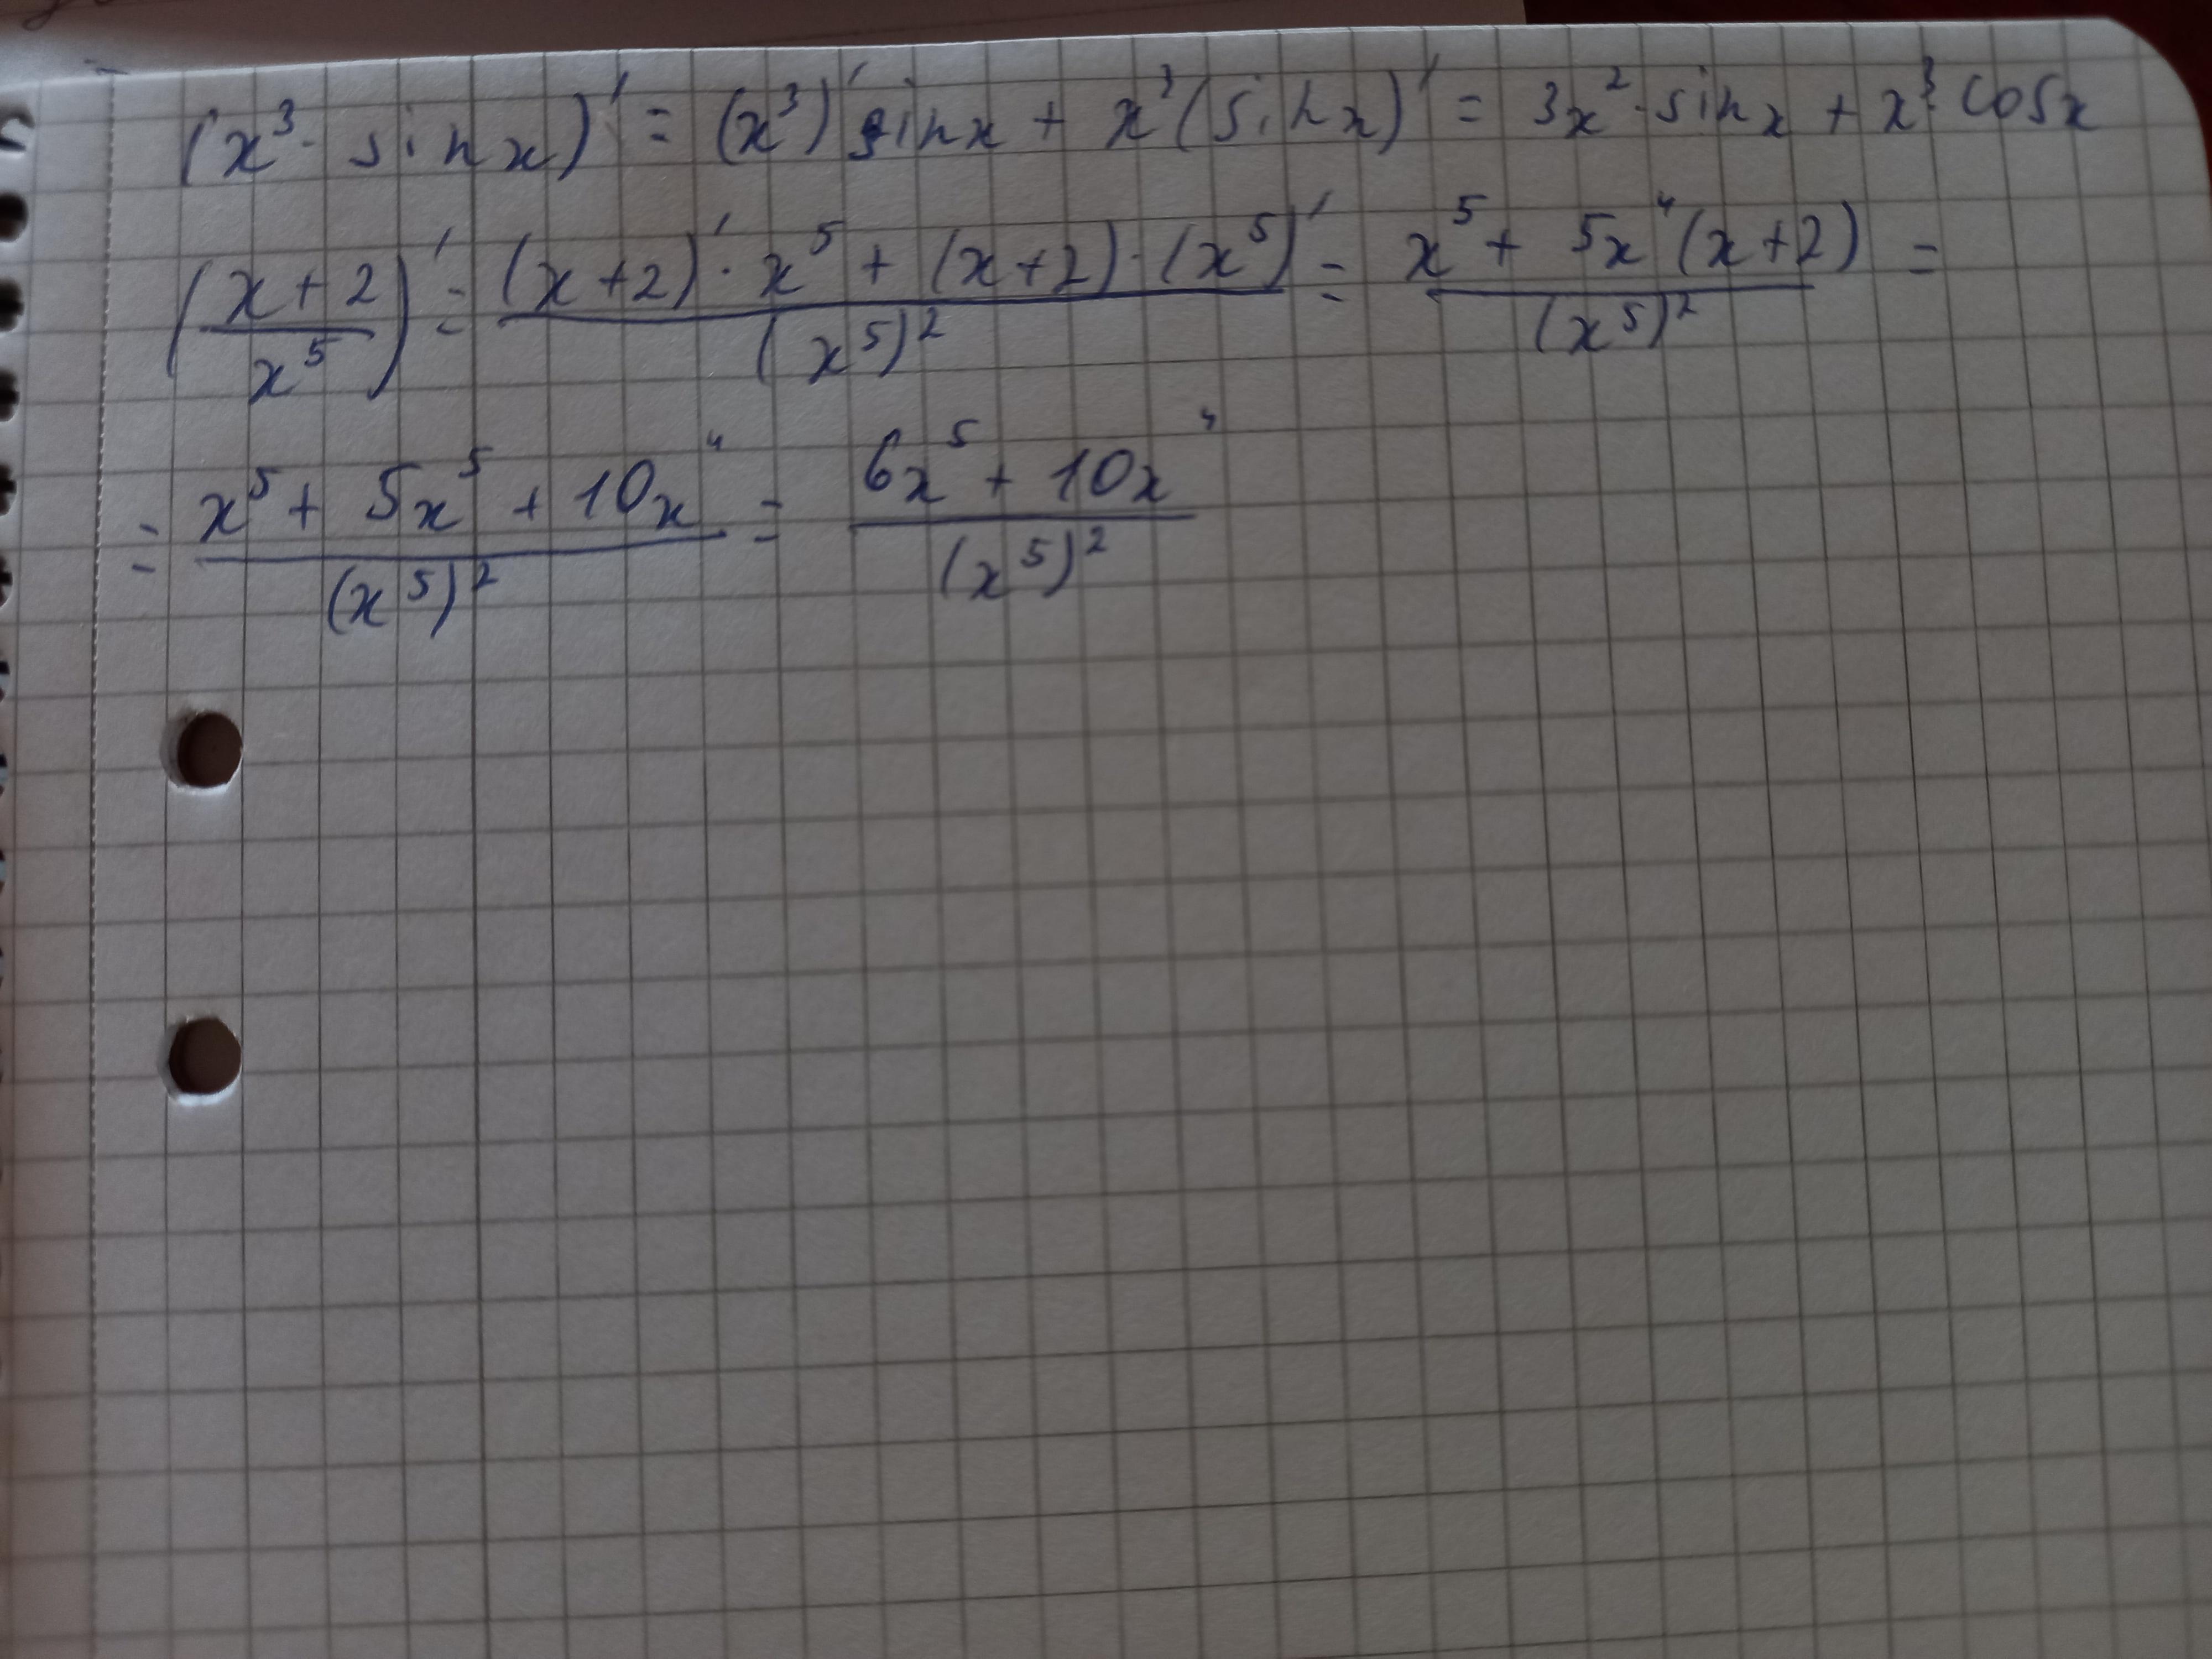 (x³ · sin x)' = (x³)' sin x + x³ (sin x)' = 3x² · sin x + x³ · cos x
((x + 2)/x⁵)' = ((x + 2)' · x⁵ + (x + 2) · (x⁵)')/(x⁵)² = (x⁵ + 5x⁴ (x + 2))/(x⁵)² =
= (x⁵ + 5x⁵ + 10x⁴)/(x⁵)² = (6x⁵ + 10x⁴)/(x⁵)²